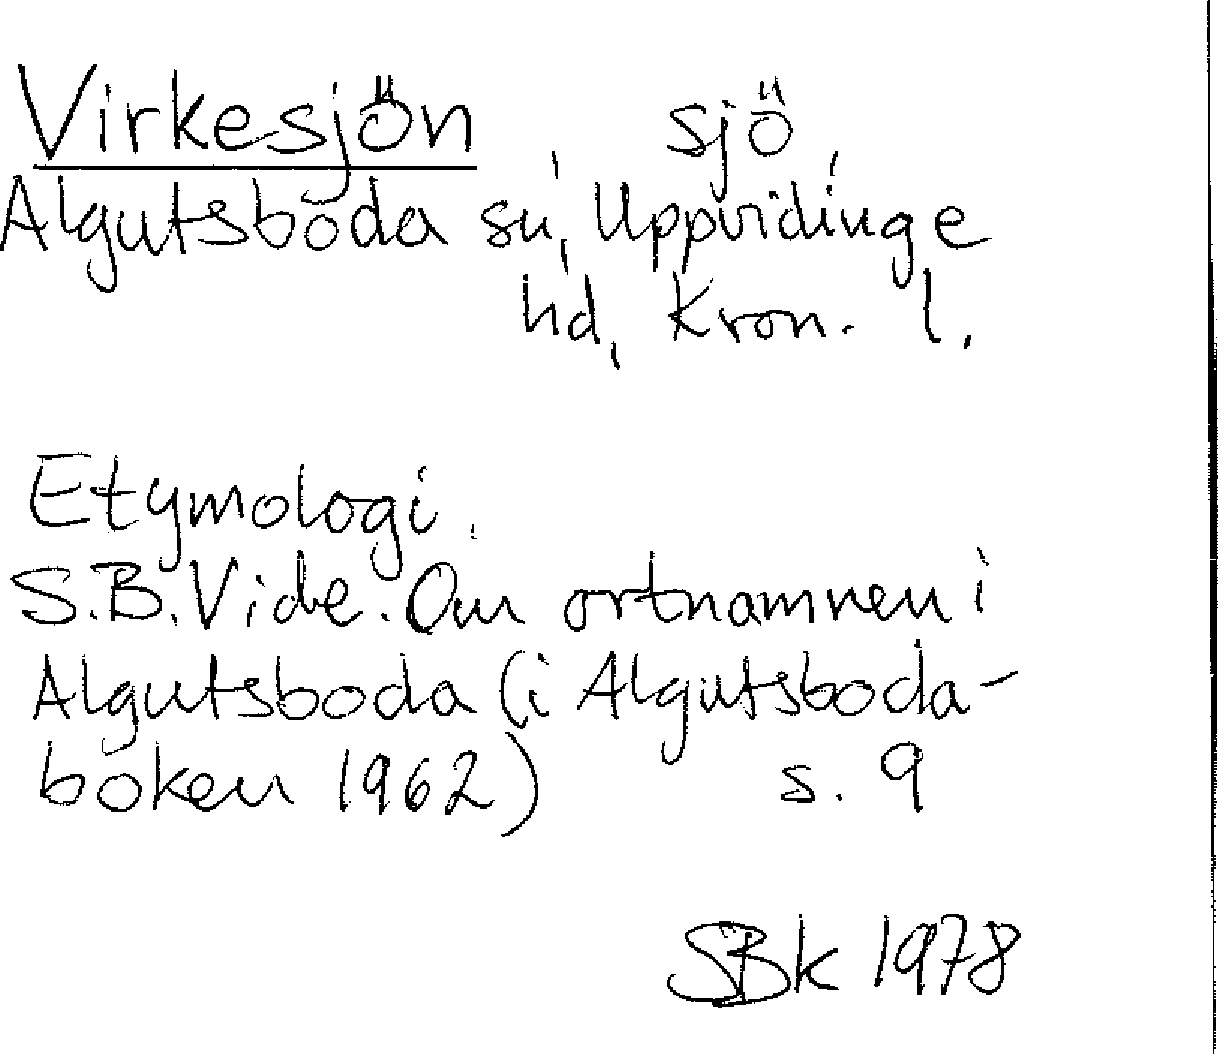 Virkesjön sjö
Algutsboda sn, Uppvidinge
hd, Kron. l.
Etymologi.
S.B.Vide. Om ortnamnen i
Algutsboda (i Algutsboda-
boken 1962) s. 9
SBk 1978